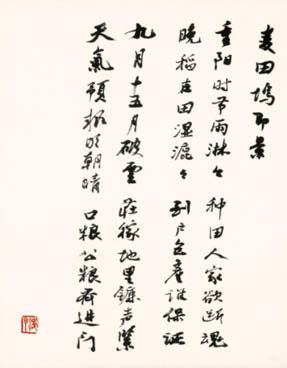 麦田塢即景
重阳时节雨淋々 种田人家欲断魂
晚稻在田湿漉々 到户包產谁保证
九月十五月破雲 莊稼地里镰声緊
天氣预报明朝晴 口粮公粮齐进门